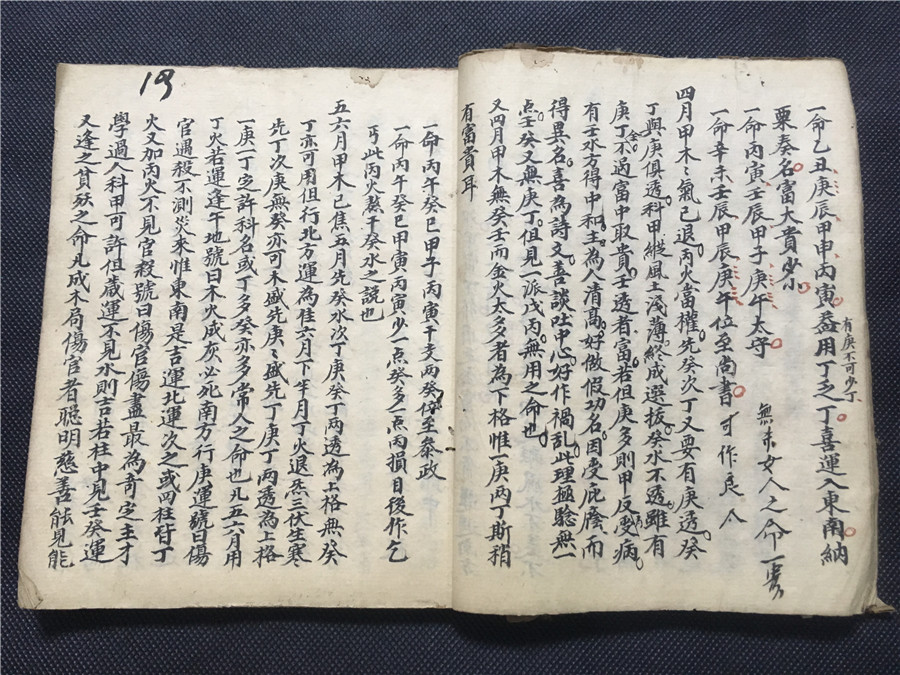 一命乙丑庚辰甲申丙寅益用丁乏丁喜運入東南納
有庚不可少丁
粟奏名富大貴少小
一命丙寅壬辰甲子庚午太守
無未女人之命一零
一命辛未壬辰甲辰庚午位至尚書
可作良人
四月甲木〻氣已退丙火當權先癸次丁又要有庚透癸
丁與庚俱透科甲縱風土淺薄終成選拔癸水不透雖有
庚丁不過富中取貴壬透者富若但庚多則甲反受病
金
有壬水方得中和主為人清髙好做假功名因受庇䕃而
得異名喜為詩文善談吐中心好作禍乱此理極驗無一
点壬癸又無庚丁但見一派戊丙無用之命也
又四月甲木無癸壬而金火太多者為下格惟一庚丙丁斯稍
有富貴耳
一命丙午癸巳甲子丙寅干支两癸位至叅政
一命丙午癸巳甲寅丙寅少一点癸多一点丙損目後作乞
丐此丙火熬干癸水之說也
五六月甲木已焦五月先癸水次丁庚癸丁两透為上格無癸
丁亦可用但行北方運為佳六月下半月丁火退炁三伏生寒
先丁次庚無癸亦可木盛先庚〻盛先丁庚丁两透為上格
一庚一丁定許科名或丁多癸亦多常人之命也凡五六月用
丁火若運逢午地號曰木火成灰必死南方行庚運號曰傷
官遇殺不測災來惟東南是吉運北運次之或四柱吞丁
火又加丙火不見官殺號曰傷官傷盡最為奇定主才
學過人科甲可許但歲運不見水則吉若柱中見壬癸運
又逢之貧殀之命凡成木局傷官者聪明慈善能見能
19